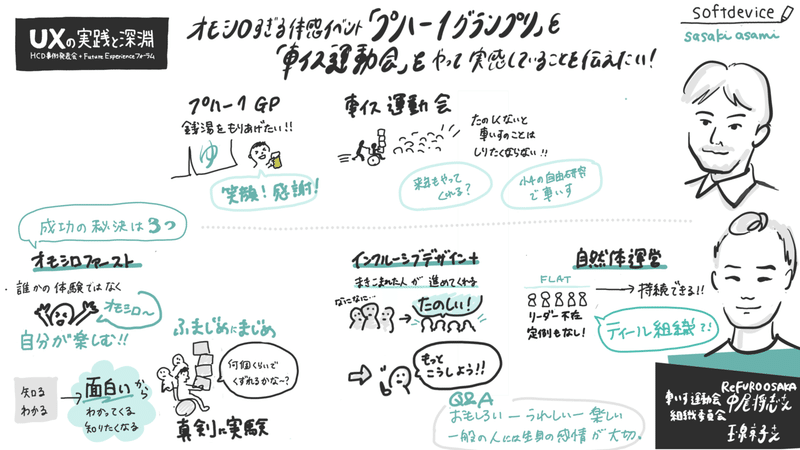 UXの実践と深淵
HCD事例発表会+Future Experienceフォーラム
オモシロすぎる体感イベント「プハー1グランプリ」を
「車イス運動会」を やって実感していることを伝えたい！
softdevice
sasaki asami
プハー1 GP
銭湯をもりあげたい!!
ゆ
笑顔！感謝！
車イス 運動会
たのしくないと
車いすのことは
しりたくならない!!
来年もやって
くれる？
小4の自由研究
で車いす
成功の秘決は3つ
オモシロファースト
誰かの体験ではなく
オモシロ〜
自分が楽しむ!!
知る
わかる
面白いから
わかってくる
知りたくなる
ふまじめにまじめ
何個くらいで
くずれるかな〜？
真剣に実験
インクルーシブデザイン+
まきこまれた人が 進めてくれる
なになに…
たのしい！
もって
こうしよう!!
Q&A
おもしろい ー うれしい ー 楽しい
一般の人には生身の感情が大切。
自然体運営
FLAT
リーダー不在
定例もなし！
持続できる!!
ティール組織で！
ReFUROOSAKA
車いす運動会
組織委員会